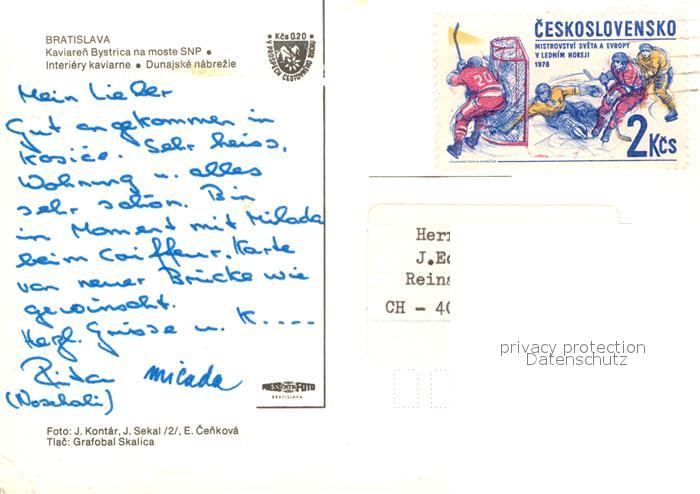 BRATISLAVA
Kaviareň Bystrica na moste SNP •
Interiéry kaviarne • Dunajské nábrežie
Kčs 0.20
V PROSPECH CESTOVNÉHO RUCHU
Mein Lieber
Gut angekommen in
Kosiće. Sehr heiss,
Wohnung u. alles
sehr schön. Bin
im Moment mit Milada
beim Coiffeur. Karte
von neuer Brücke wie
gewünscht.
Herzl. Grüsse u. K.....
Rita Milada
(Noschali)
PRESSFOTO
BRATISLAVA
Foto: J. Kontár, J. Sekal /2/, E. Čeňková
Tlač: Grafobal Skalica
ČESKOSLOVENSKO
MISTROVSTVÍ SVĚTA A EVROPY
V LEDNÍM HOKEJI
1978
20
2 Kčs
Herr
J.Ed
Reina
CH - 40
privacy protection
Datenschutz